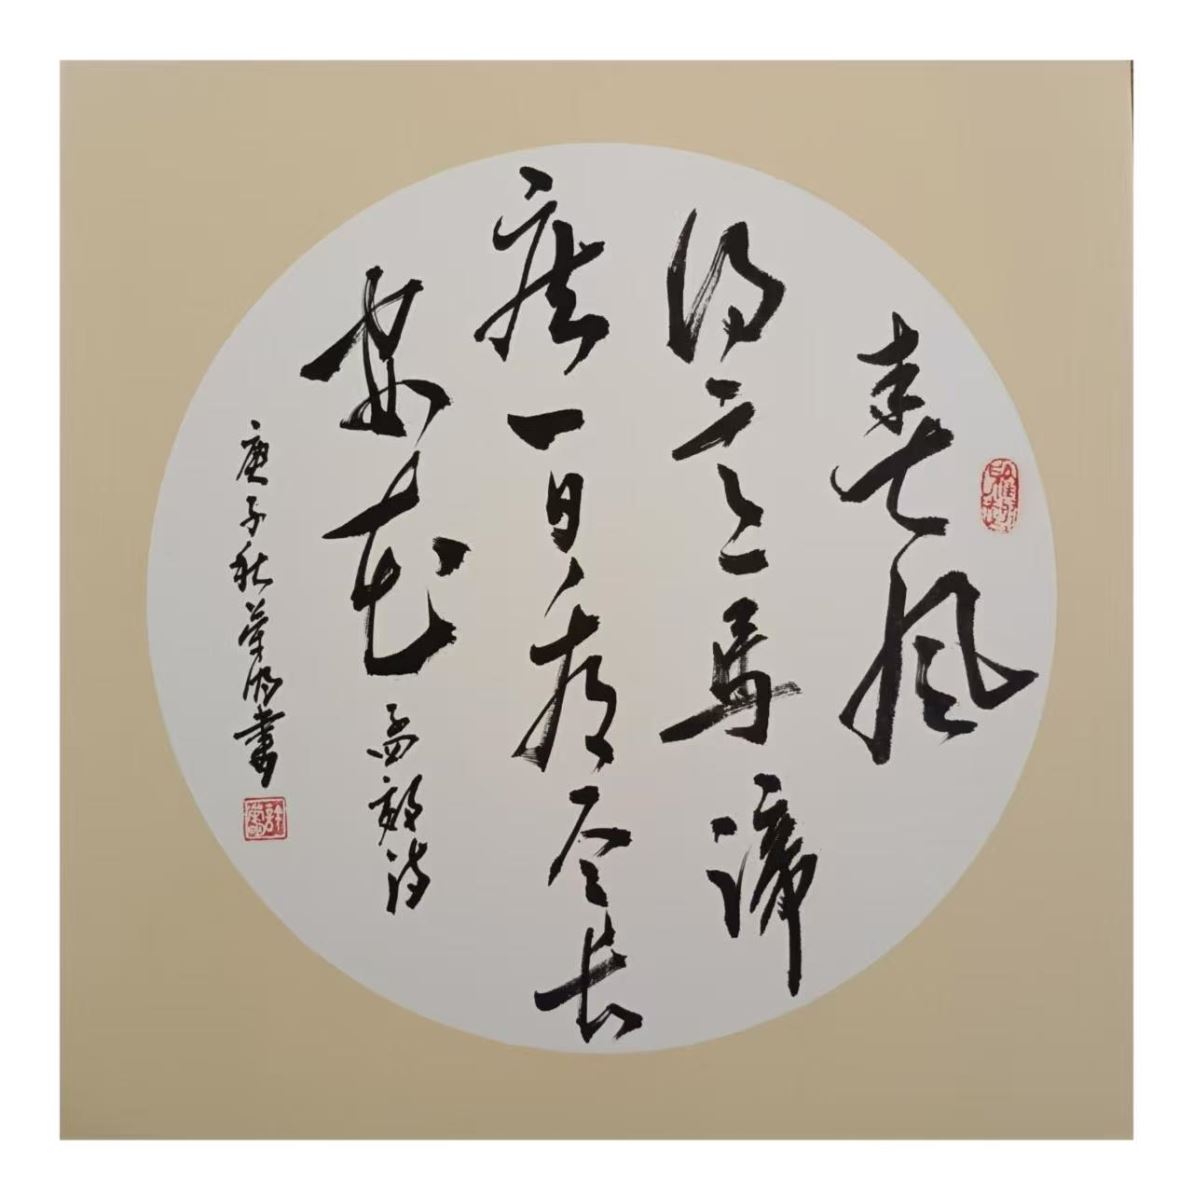 春风
得意馬蹄
疾一日看尽长
安花 孟郊诗
庚子秋荣明書